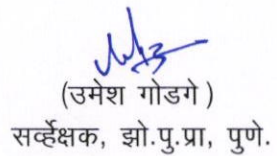 (उमेश गोडगे )
सर्व्हेक्षक, झो.पु.प्रा, पुणे.